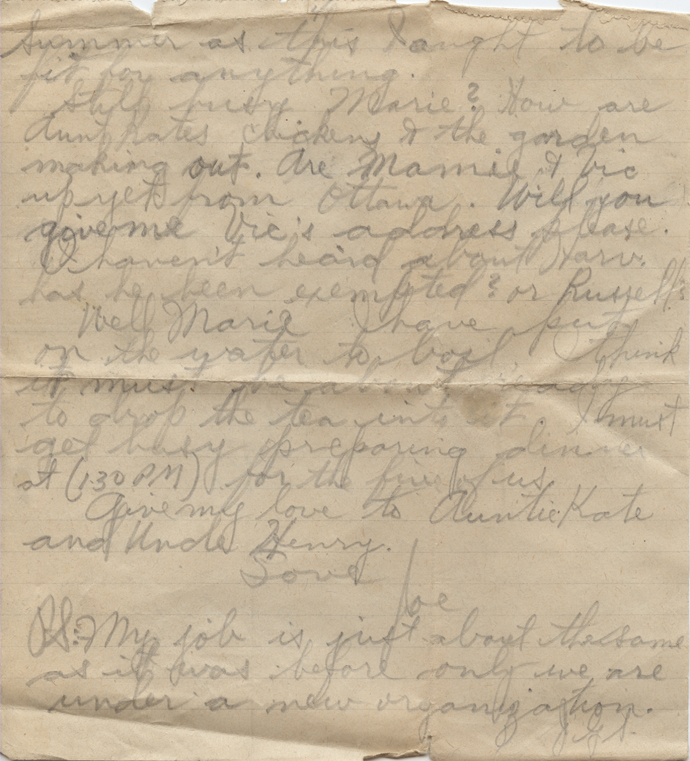 Summer as this I aught to be
fit for anything.
Still busy Marie? How are
Aunt Kates chickens & the garden
making out. Are Mamie & Vic
up yet from Ottawa. Will you
give me Vic's address please.
I haven't heard about Harv.
has he been exempted? or Russell?
Well Marie I have put
on the water to boil I think
it must be about ready
to drop the tea into it. I must
get busy preparing dinner
at (1:30 PM) for the five of us
Give my love to Auntie Kate
and Uncle Henry.
Love
Joe
P.S. My job is just about the same
as it was before only we are
under a new organization.